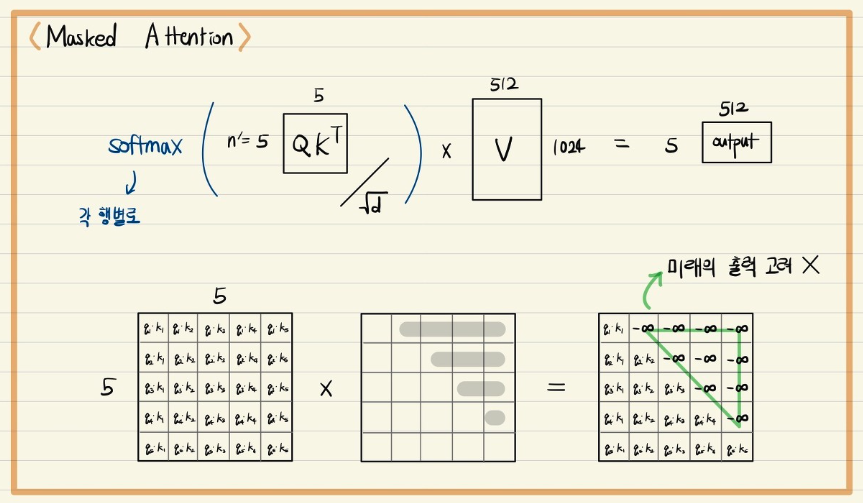 <Masked Attention>
softmax ( n'= 5 5 QKᵀ / √d ) x 512 V 1024 = 5 512 output
각 행별로
미래의 출력 고려 X
5
5 x =
q₁·k₁ q₁·k₂ q₁·k₃ q₁·k₄ q₁·k₅
q₂·k₁ q₂·k₂ q₂·k₃ q₂·k₄ q₂·k₅
q₃·k₁ q₃·k₂ q₃·k₃ q₃·k₄ q₃·k₅
q₄·k₁ q₄·k₂ q₄·k₃ q₄·k₄ q₄·k₅
q₅·k₁ q₅·k₂ q₅·k₃ q₅·k₄ q₅·k₅
q₁·k₁ -∞ -∞ -∞ -∞
q₂·k₁ q₂·k₂ -∞ -∞ -∞
q₃·k₁ q₃·k₂ q₃·k₃ -∞ -∞
q₄·k₁ q₄·k₂ q₄·k₃ q₄·k₄ -∞
q₅·k₁ q₅·k₂ q₅·k₃ q₅·k₄ q₅·k₅